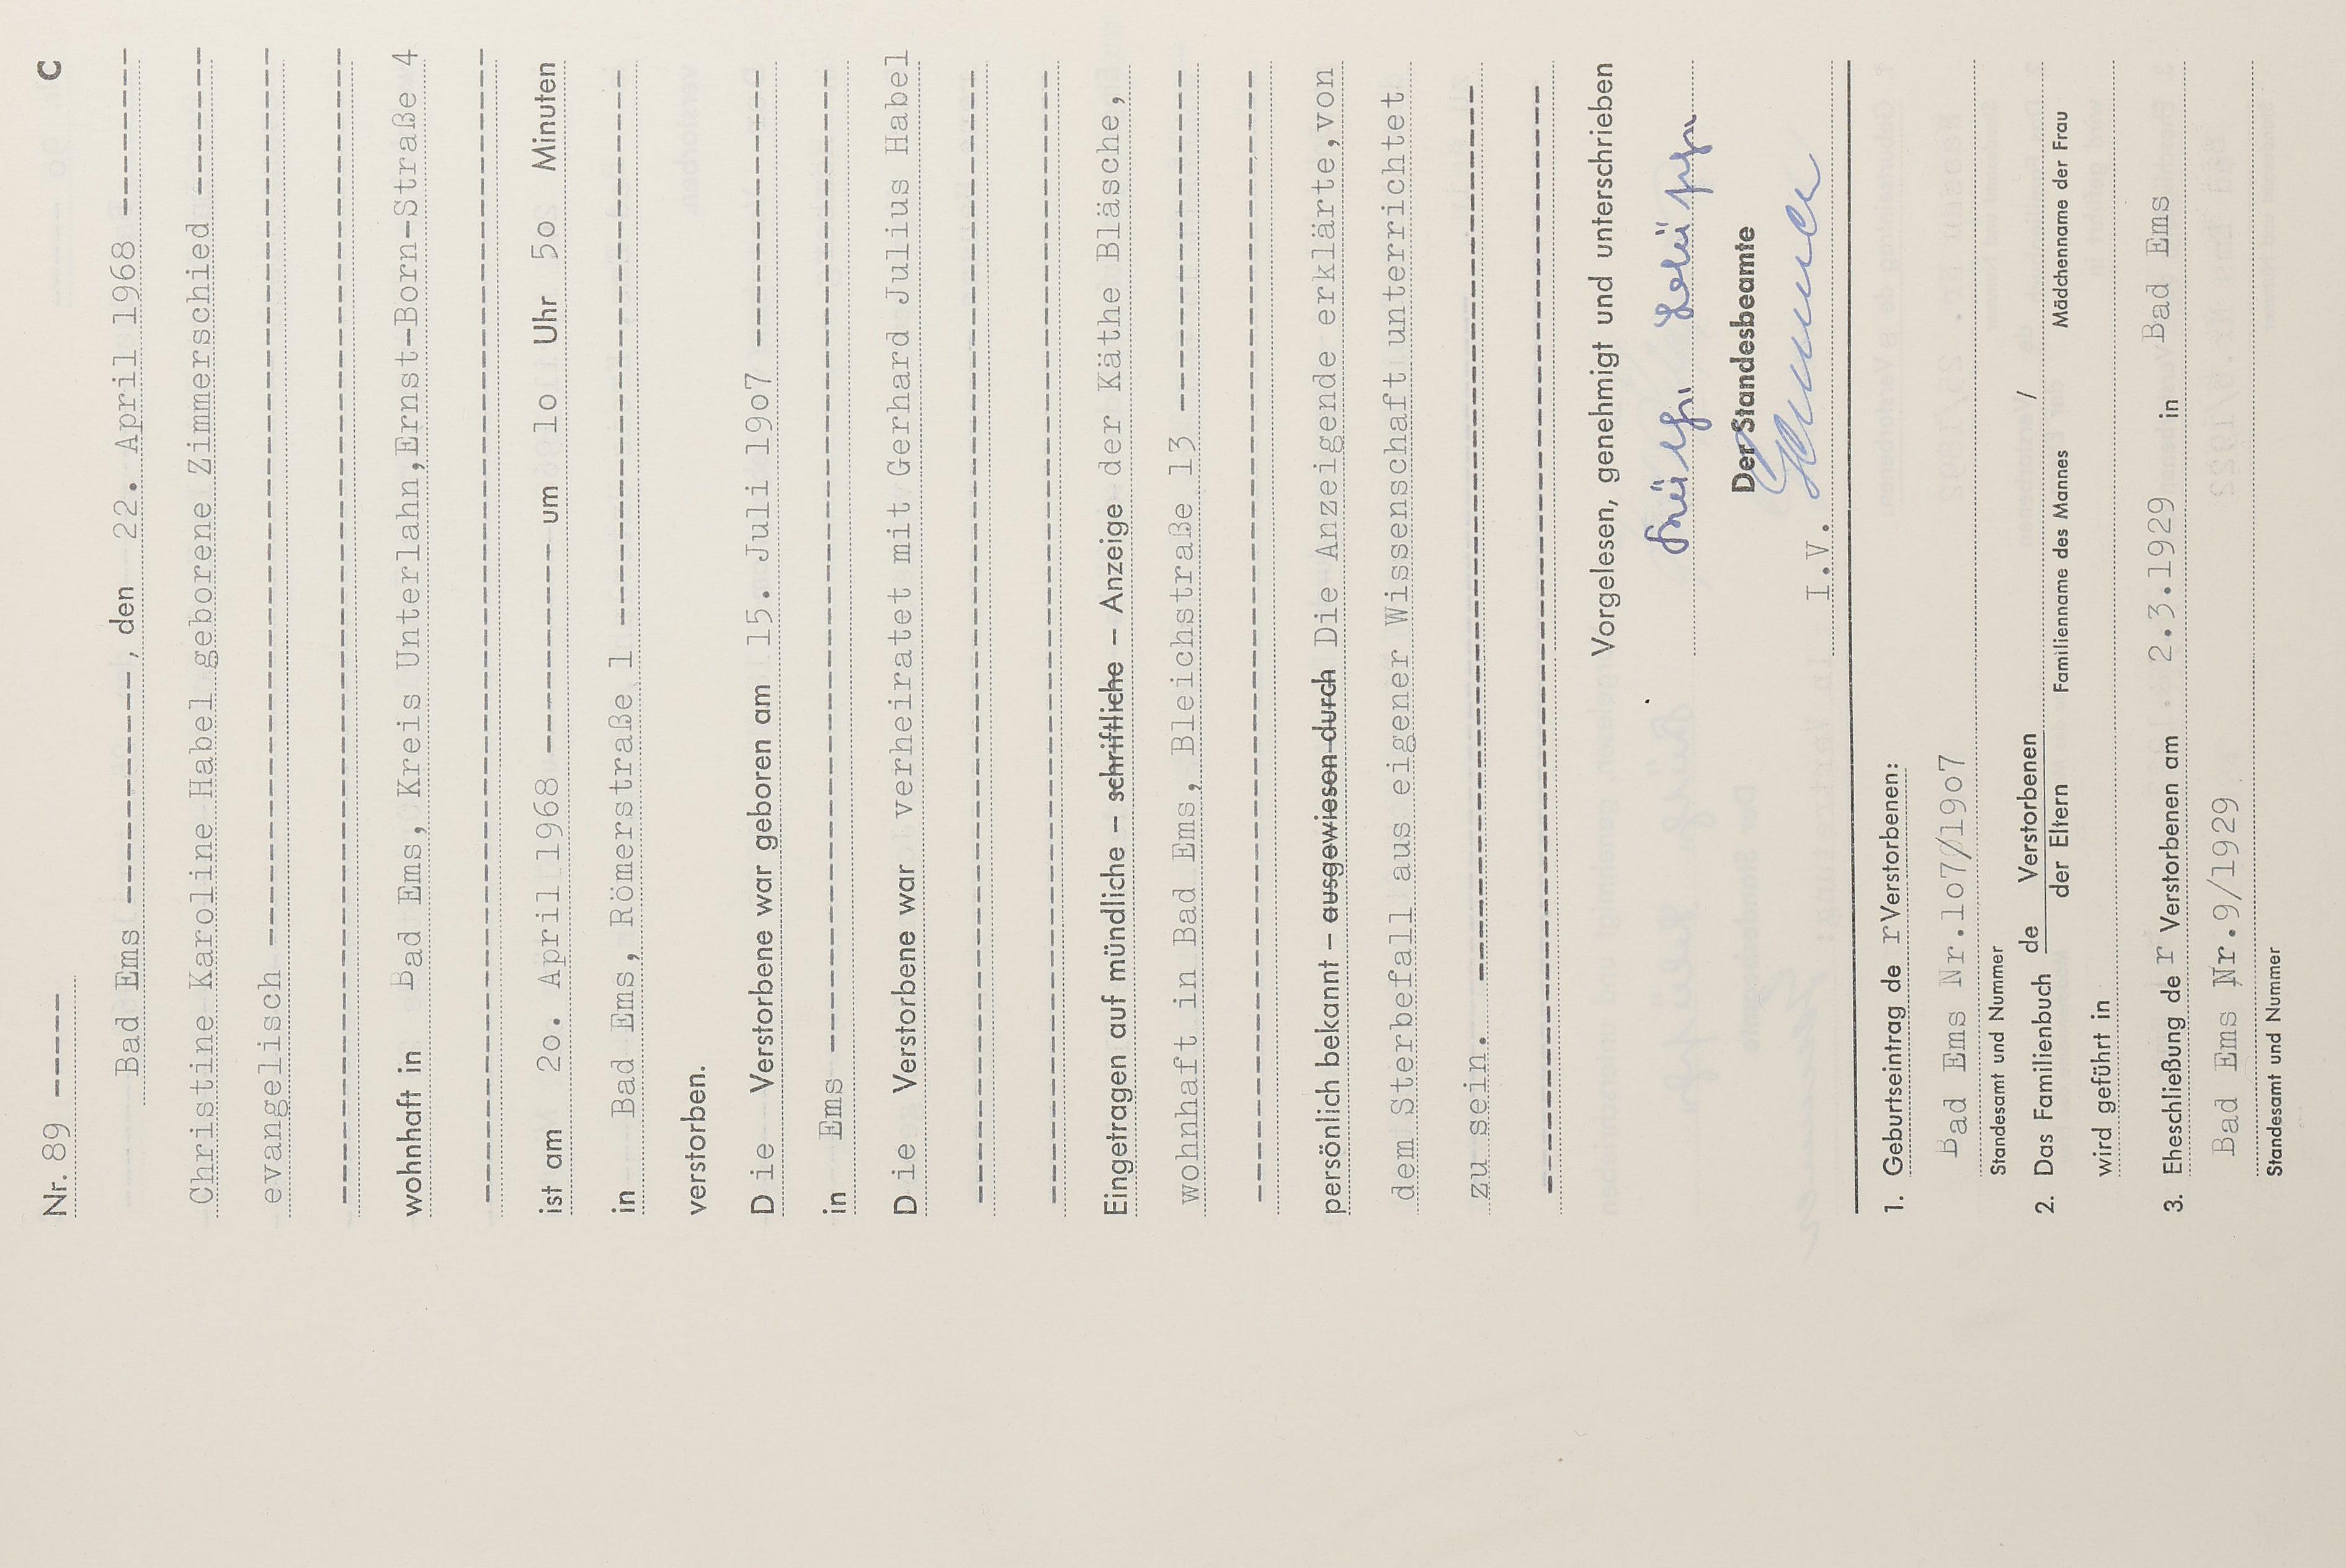 Nr. 89 ----- C
Bad Ems ----------, den 22. April 1968 -------
Christine Karoline Habel geborene Zimmerschied ------
evangelisch
wohnhaft in Bad Ems, Kreis Unterlahn, Ernst-Born-Straße 4
ist am 2o. April 1968 ---------- um 1o Uhr 5o Minuten
in Bad Ems, Römerstraße 1
verstorben.
Die Verstorbene war geboren am 15. Juli 19o7
in Ems
Die Verstorbene war verheiratet mit Gerhard Julius Habel
Eingetragen auf mündliche – schriftliche – Anzeige der Käthe Bläsche,
wohnhaft in Bad Ems, Bleichstraße 13
persönlich bekannt – ausgewiesen durch Die Anzeigende erklärte, von
dem Sterbefall aus eigener Wissenschaft unterrichtet
zu sein.
Vorgelesen, genehmigt und unterschrieben
Der Standesbeamte
I.V.
1. Geburtseintrag de r Verstorbenen:
Bad Ems Nr.1o7/19o7
Standesamt und Nummer
2. Das Familienbuch de Verstorbenen /
der Eltern Familienname des Mannes Mädchenname der Frau
wird geführt in
3. Eheschließung de r Verstorbenen am 2.3.1929 in Bad Ems
Bad Ems Nr.9/1929
Standesamt und Nummer